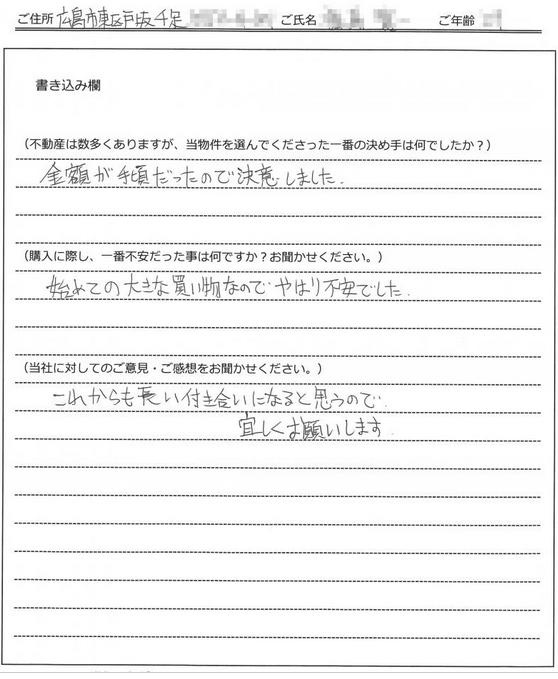 ご住所 広島市東区戸坂千足 ご氏名 ご年齢
書き込み欄
(不動産は数多くありますが、当物件を選んでくださった一番の決め手は何でしたか?)
金額が手頃だったので決意しました.
(購入に際し、一番不安だった事は何ですか?お聞かせください。)
始めての大きな買い物なので やはり不安でした.
(当社に対してのご意見・ご感想をお聞かせください。)
これからも長い付き合いになると思うので.
宜しくお願いします.